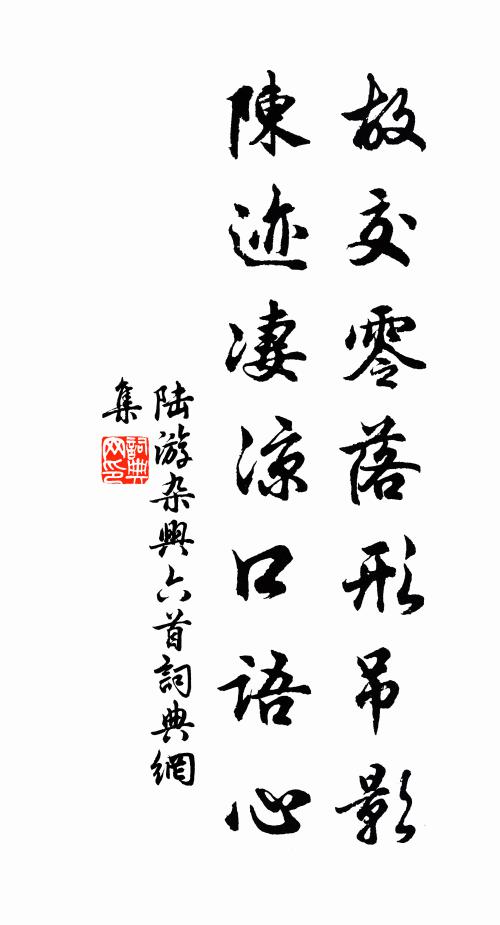 故交零落形吊影
陳迹凄凉口語心
陆游杂興六首詞典網
集
詞典
网印